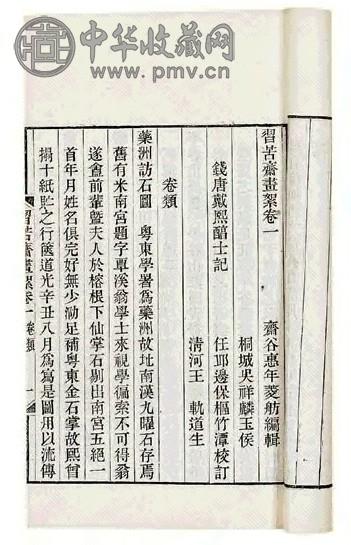 中华收藏网
www.pmv.cn
習苦齋畫絮卷一
齋谷惠年菱舫編輯
錢唐戴熙醇士記
桐城吳祥麟玉侯
任邱邊保樞竹潭校訂
清河王 軌道生
卷類
藥洲訪石圖 粵東學署爲藥洲故址南漢九曜石存焉
舊有米南宮題字覃溪翁學士來視學徧索不可得翁
遂盦前輩曁夫人於榕根下仙掌石剔出南宮五絕一
首年月姓名俱完好無少泐足補粵東金石掌故熙曾
搨十紙貯之行篋道光辛丑八月爲寫是圖用以流傳
習苦齋畫絮卷一 卷類 一